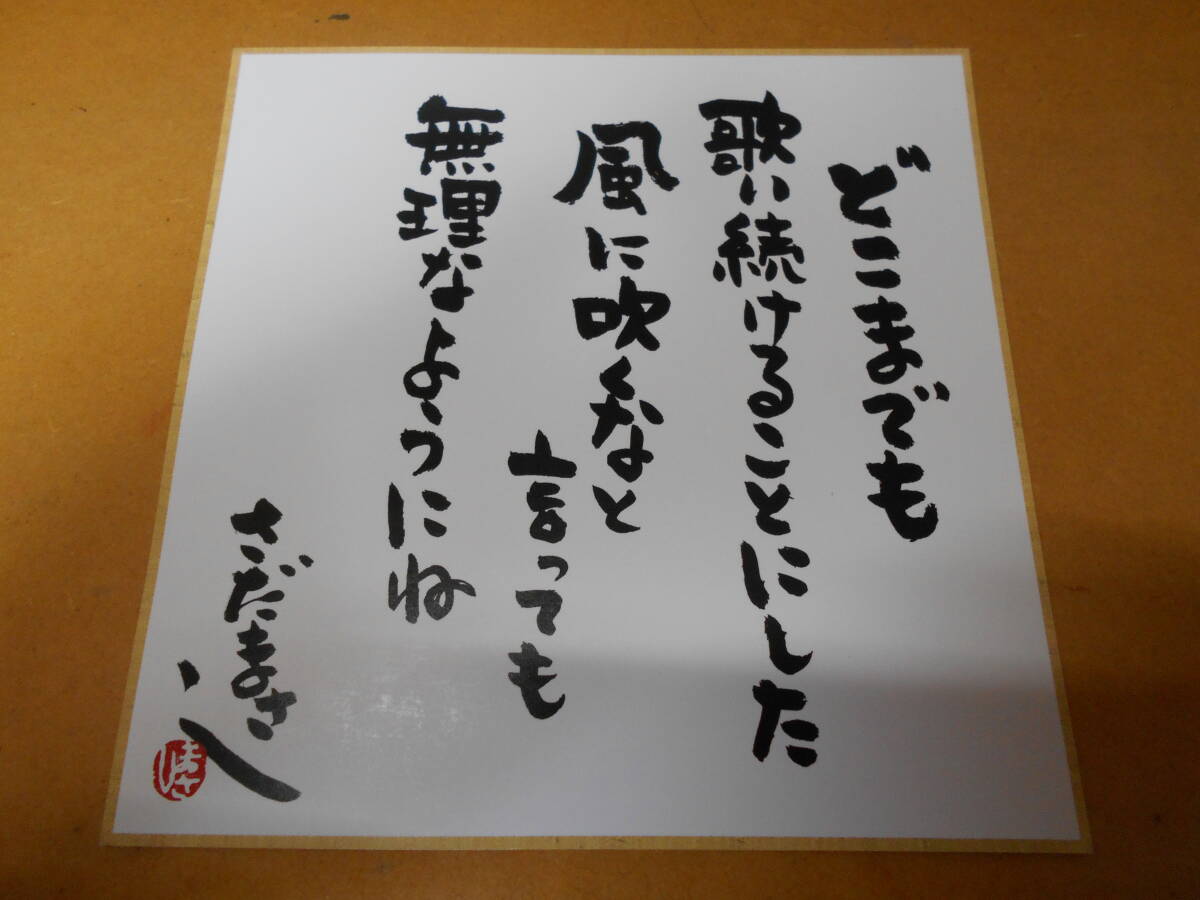 どこまでも
歌い続けることにした
風に吹くなと
言っても
無理なようにね
さだまさし
まさし